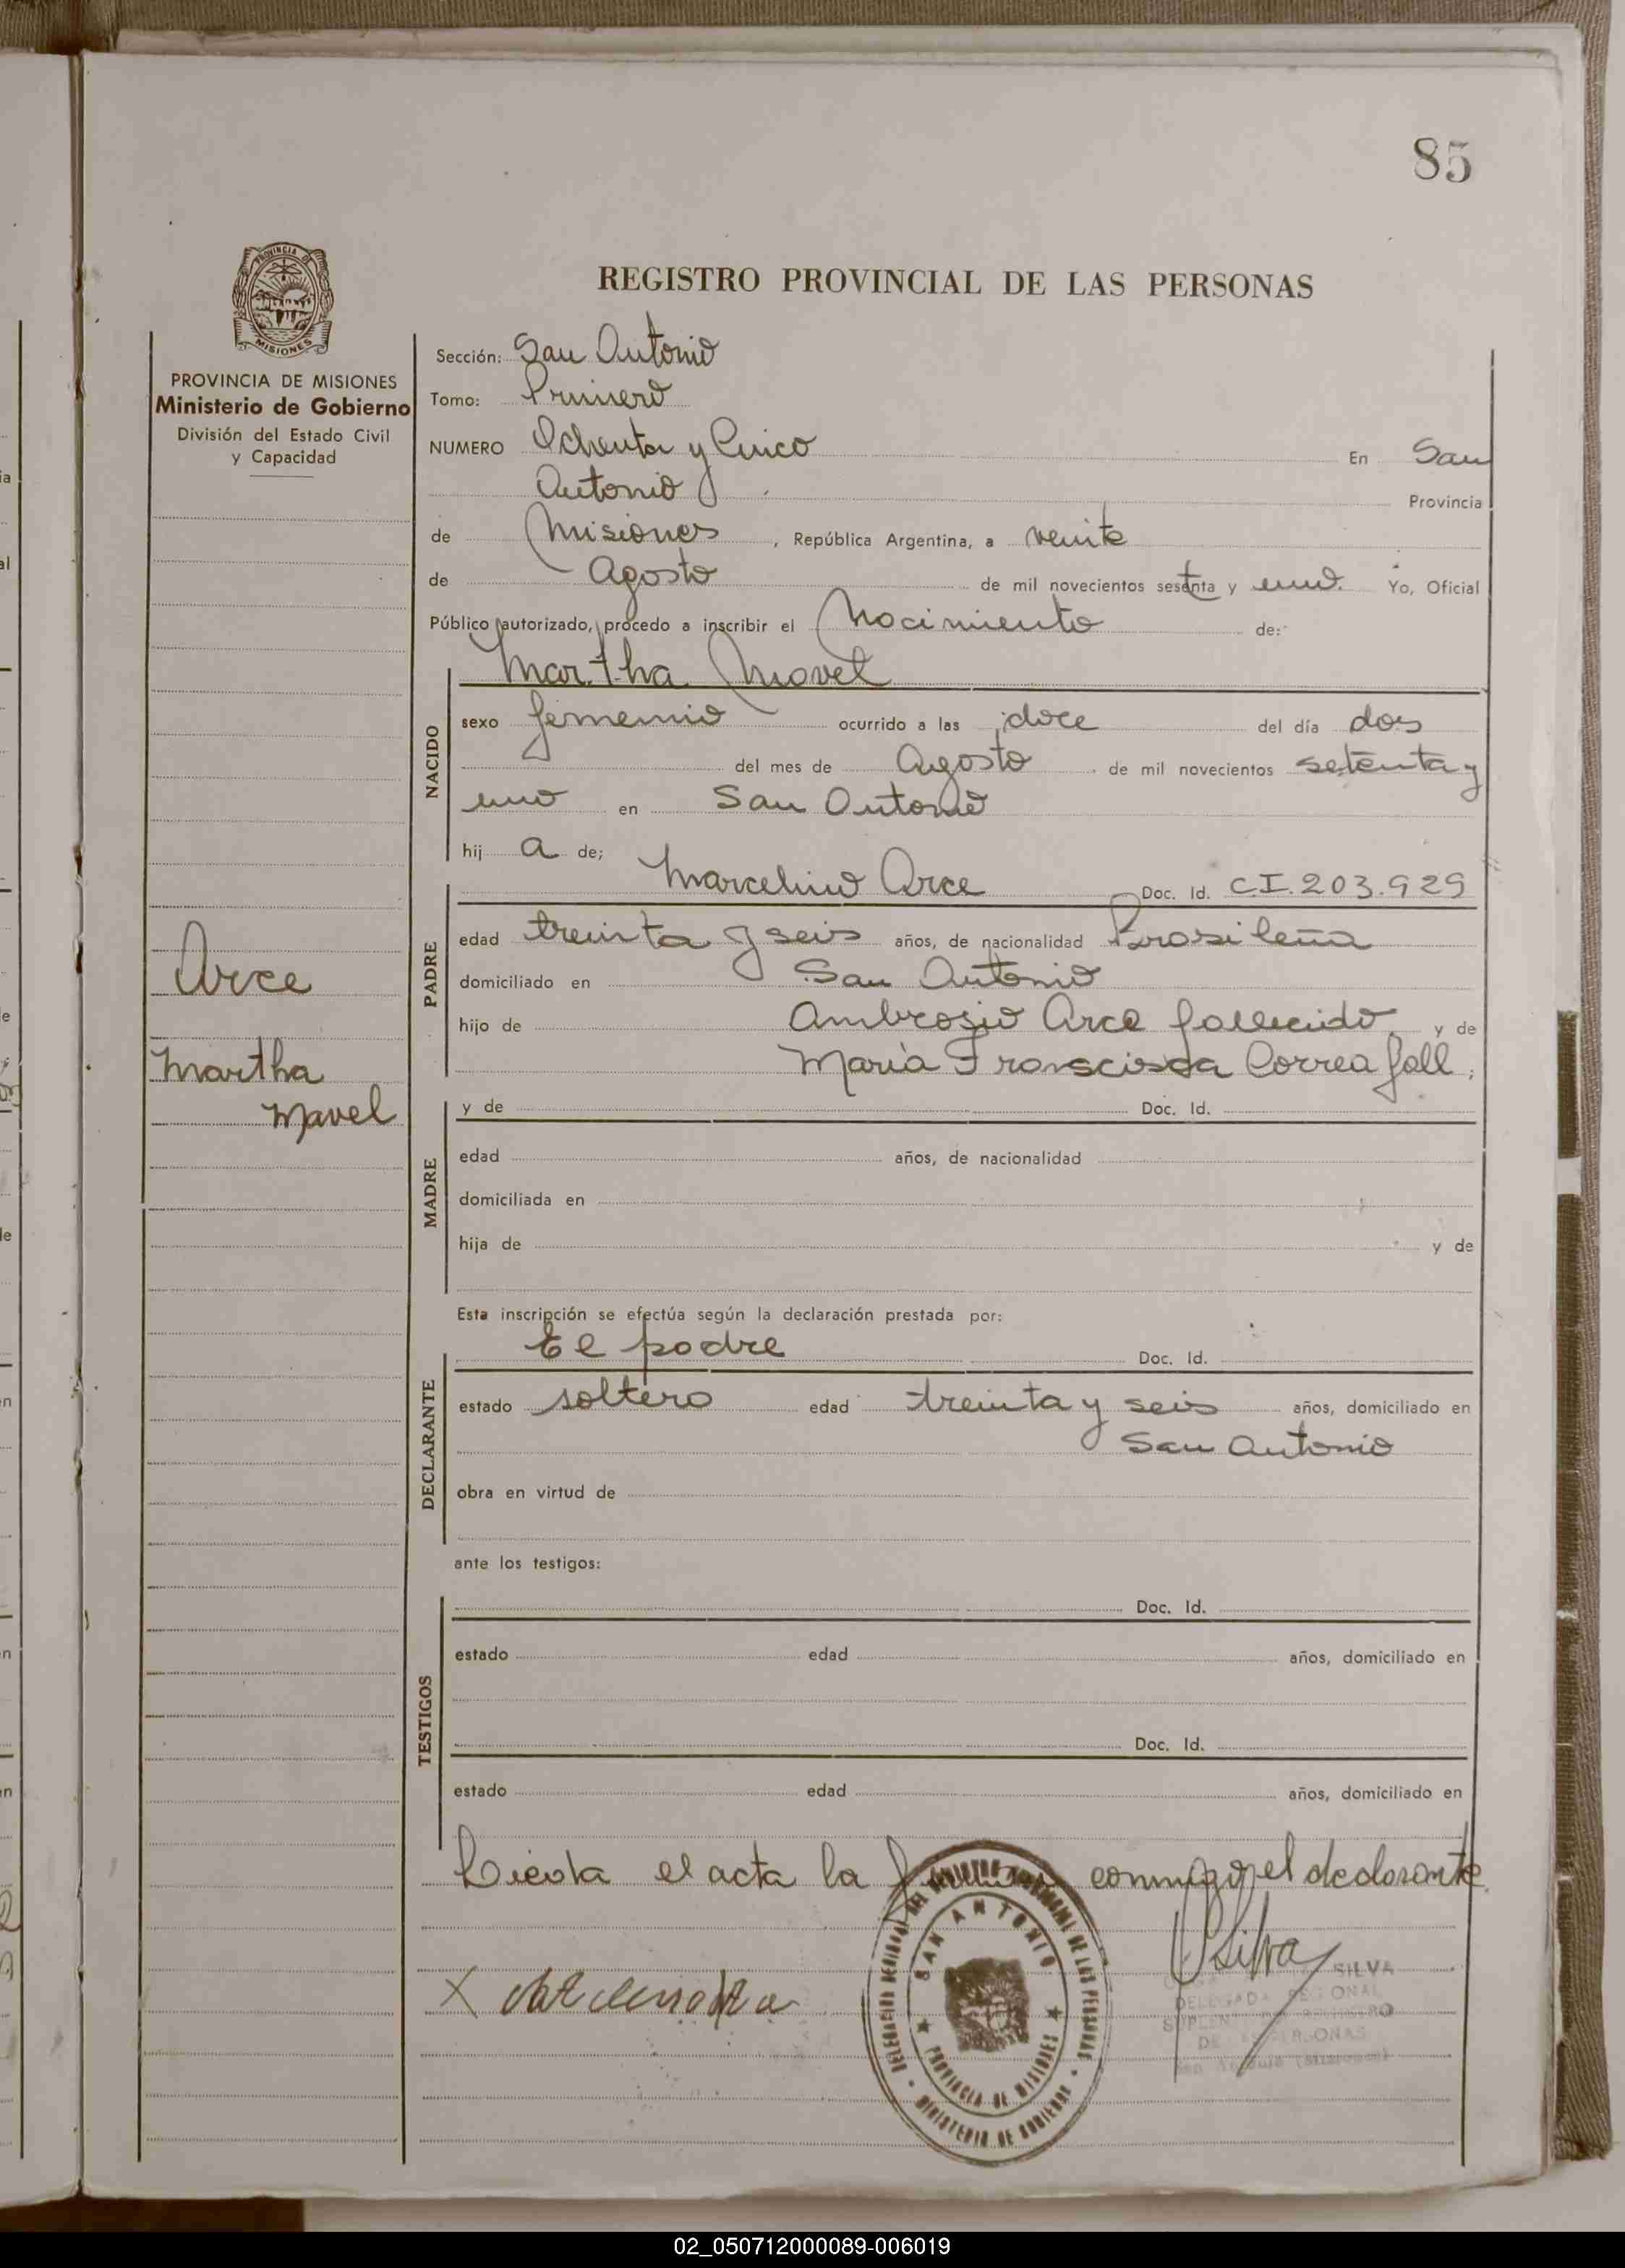 85
PROVINCIA DE MISIONES
PROVINCIA DE MISIONES
Ministerio de Gobierno
División del Estado Civil
y Capacidad
Arce
Martha
Mavel
REGISTRO PROVINCIAL DE LAS PERSONAS
Sección: San Antonio
Tomo: Primero
NUMERO Ochenta y Cinco En San
Antonio Provincia
de Misiones, República Argentina, a veinte
de Agosto de mil novecientos setenta y uno. Yo, Oficial
Público autorizado, procedo a inscribir el Nacimiento de:
Martha Mavel
NACIDO
sexo femenino ocurrido a las doce del día dos
del mes de Agosto de mil novecientos setenta y
uno en San Antonio
hij a de;
Marcelino Arce Doc. Id. C.I. 203.929
PADRE
edad treinta y seis años, de nacionalidad Brasileña
domiciliado en San Antonio
hijo de Ambrosio Arce fallecido y de
María Franscisca Correa fall.
MADRE
y de Doc. Id.
edad años, de nacionalidad
domiciliada en
hija de y de
Esta inscripción se efectúa según la declaración prestada por:
El padre Doc. Id.
DECLARANTE
estado soltero edad treinta y seis años, domiciliado en
San Antonio
obra en virtud de
ante los testigos:
TESTIGOS
Doc. Id.
estado edad años, domiciliado en
Doc. Id.
estado edad años, domiciliado en
Leída el acta la conmigo el declarante
X
Silva
SILVA
DELEGADA REGIONAL
DE LAS PERSONAS
SAN ANTONIO
PROVINCIA DE MISIONES
MINISTERIO DE GOBIERNO
02_050712000089-006019